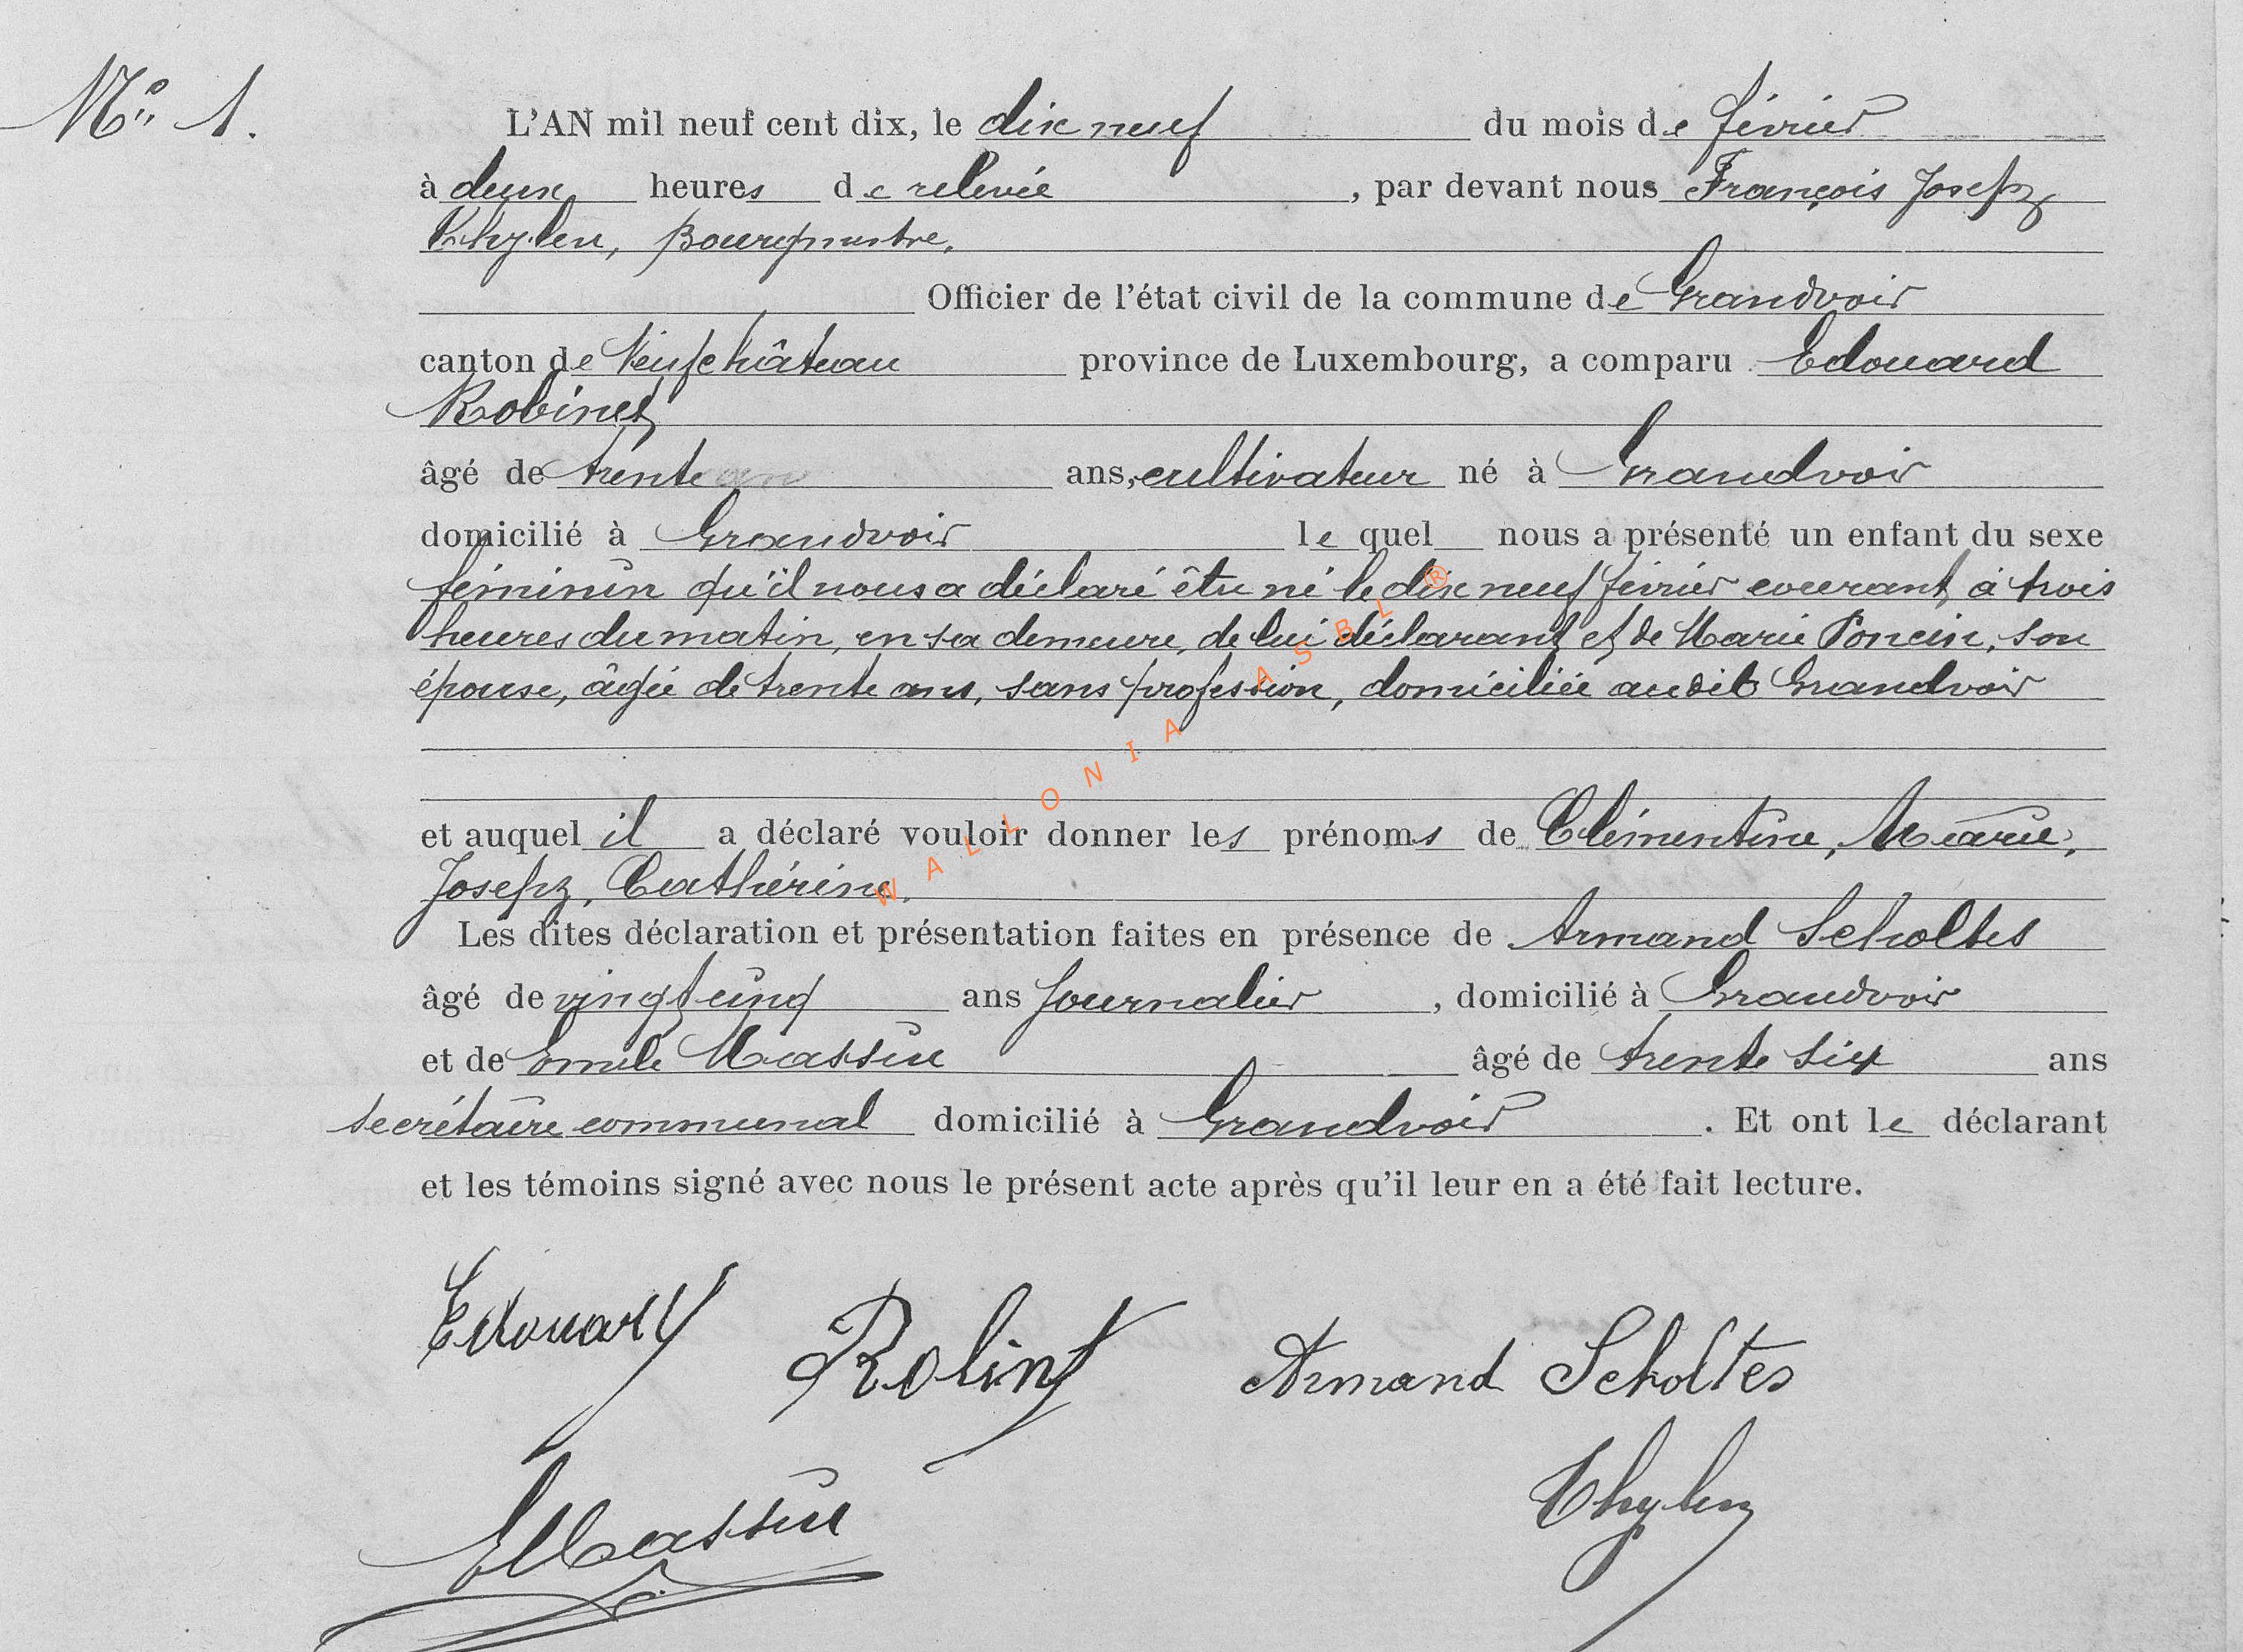 N° 1.
L'AN mil neuf cent dix, le dix neuf du mois de février
à deux heures de relevée, par devant nous François Joseph
Thylen, Bourgmestre,
Officier de l'état civil de la commune de Grandvoir
canton de Neufchâteau province de Luxembourg, a comparu Edouard
Robinet
âgé de trente ans, cultivateur né à Grandvoir
domicilié à Grandvoir le quel nous a présenté un enfant du sexe
féminin qu'il nous a déclaré être né le dix neuf février courant, à trois
heures du matin, en sa demeure, de lui déclarant et de Marie Poncin, son
épouse, âgée de trente ans, sans profession, domiciliée audit Grandvoir
et auquel il a déclaré vouloir donner les prénoms de Clémentine, Marie,
Joseph, Cathérine.
Les dites déclaration et présentation faites en présence de Armand Scholtes
âgé de vingt cinq ans Journalier, domicilié à Grandvoir
et de Emile Massin âgé de trente six ans
secrétaire communal domicilié à Grandvoir. Et ont le déclarant
et les témoins signé avec nous le présent acte après qu'il leur en a été fait lecture.
Edouard Robinet Armand Scholtes
EMassin Thylen
WALLONIA ASBL ®